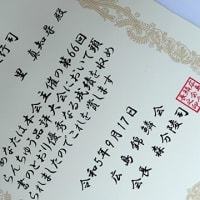 行司
殿
あなたは本会主催の第66回
らんちゅう品評大会において頭
書のとおり優秀なる成績を収め
られましたのでこれを賞します
令和5年9月17日
広島錦鱗会
会長